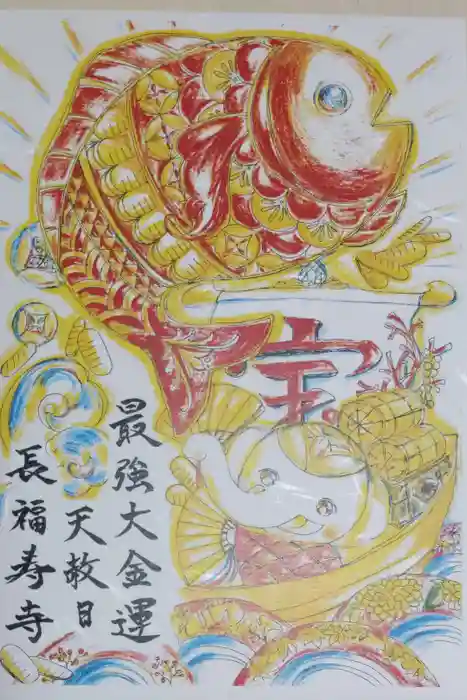 宝
最強大金運
天赦日
長福寿寺